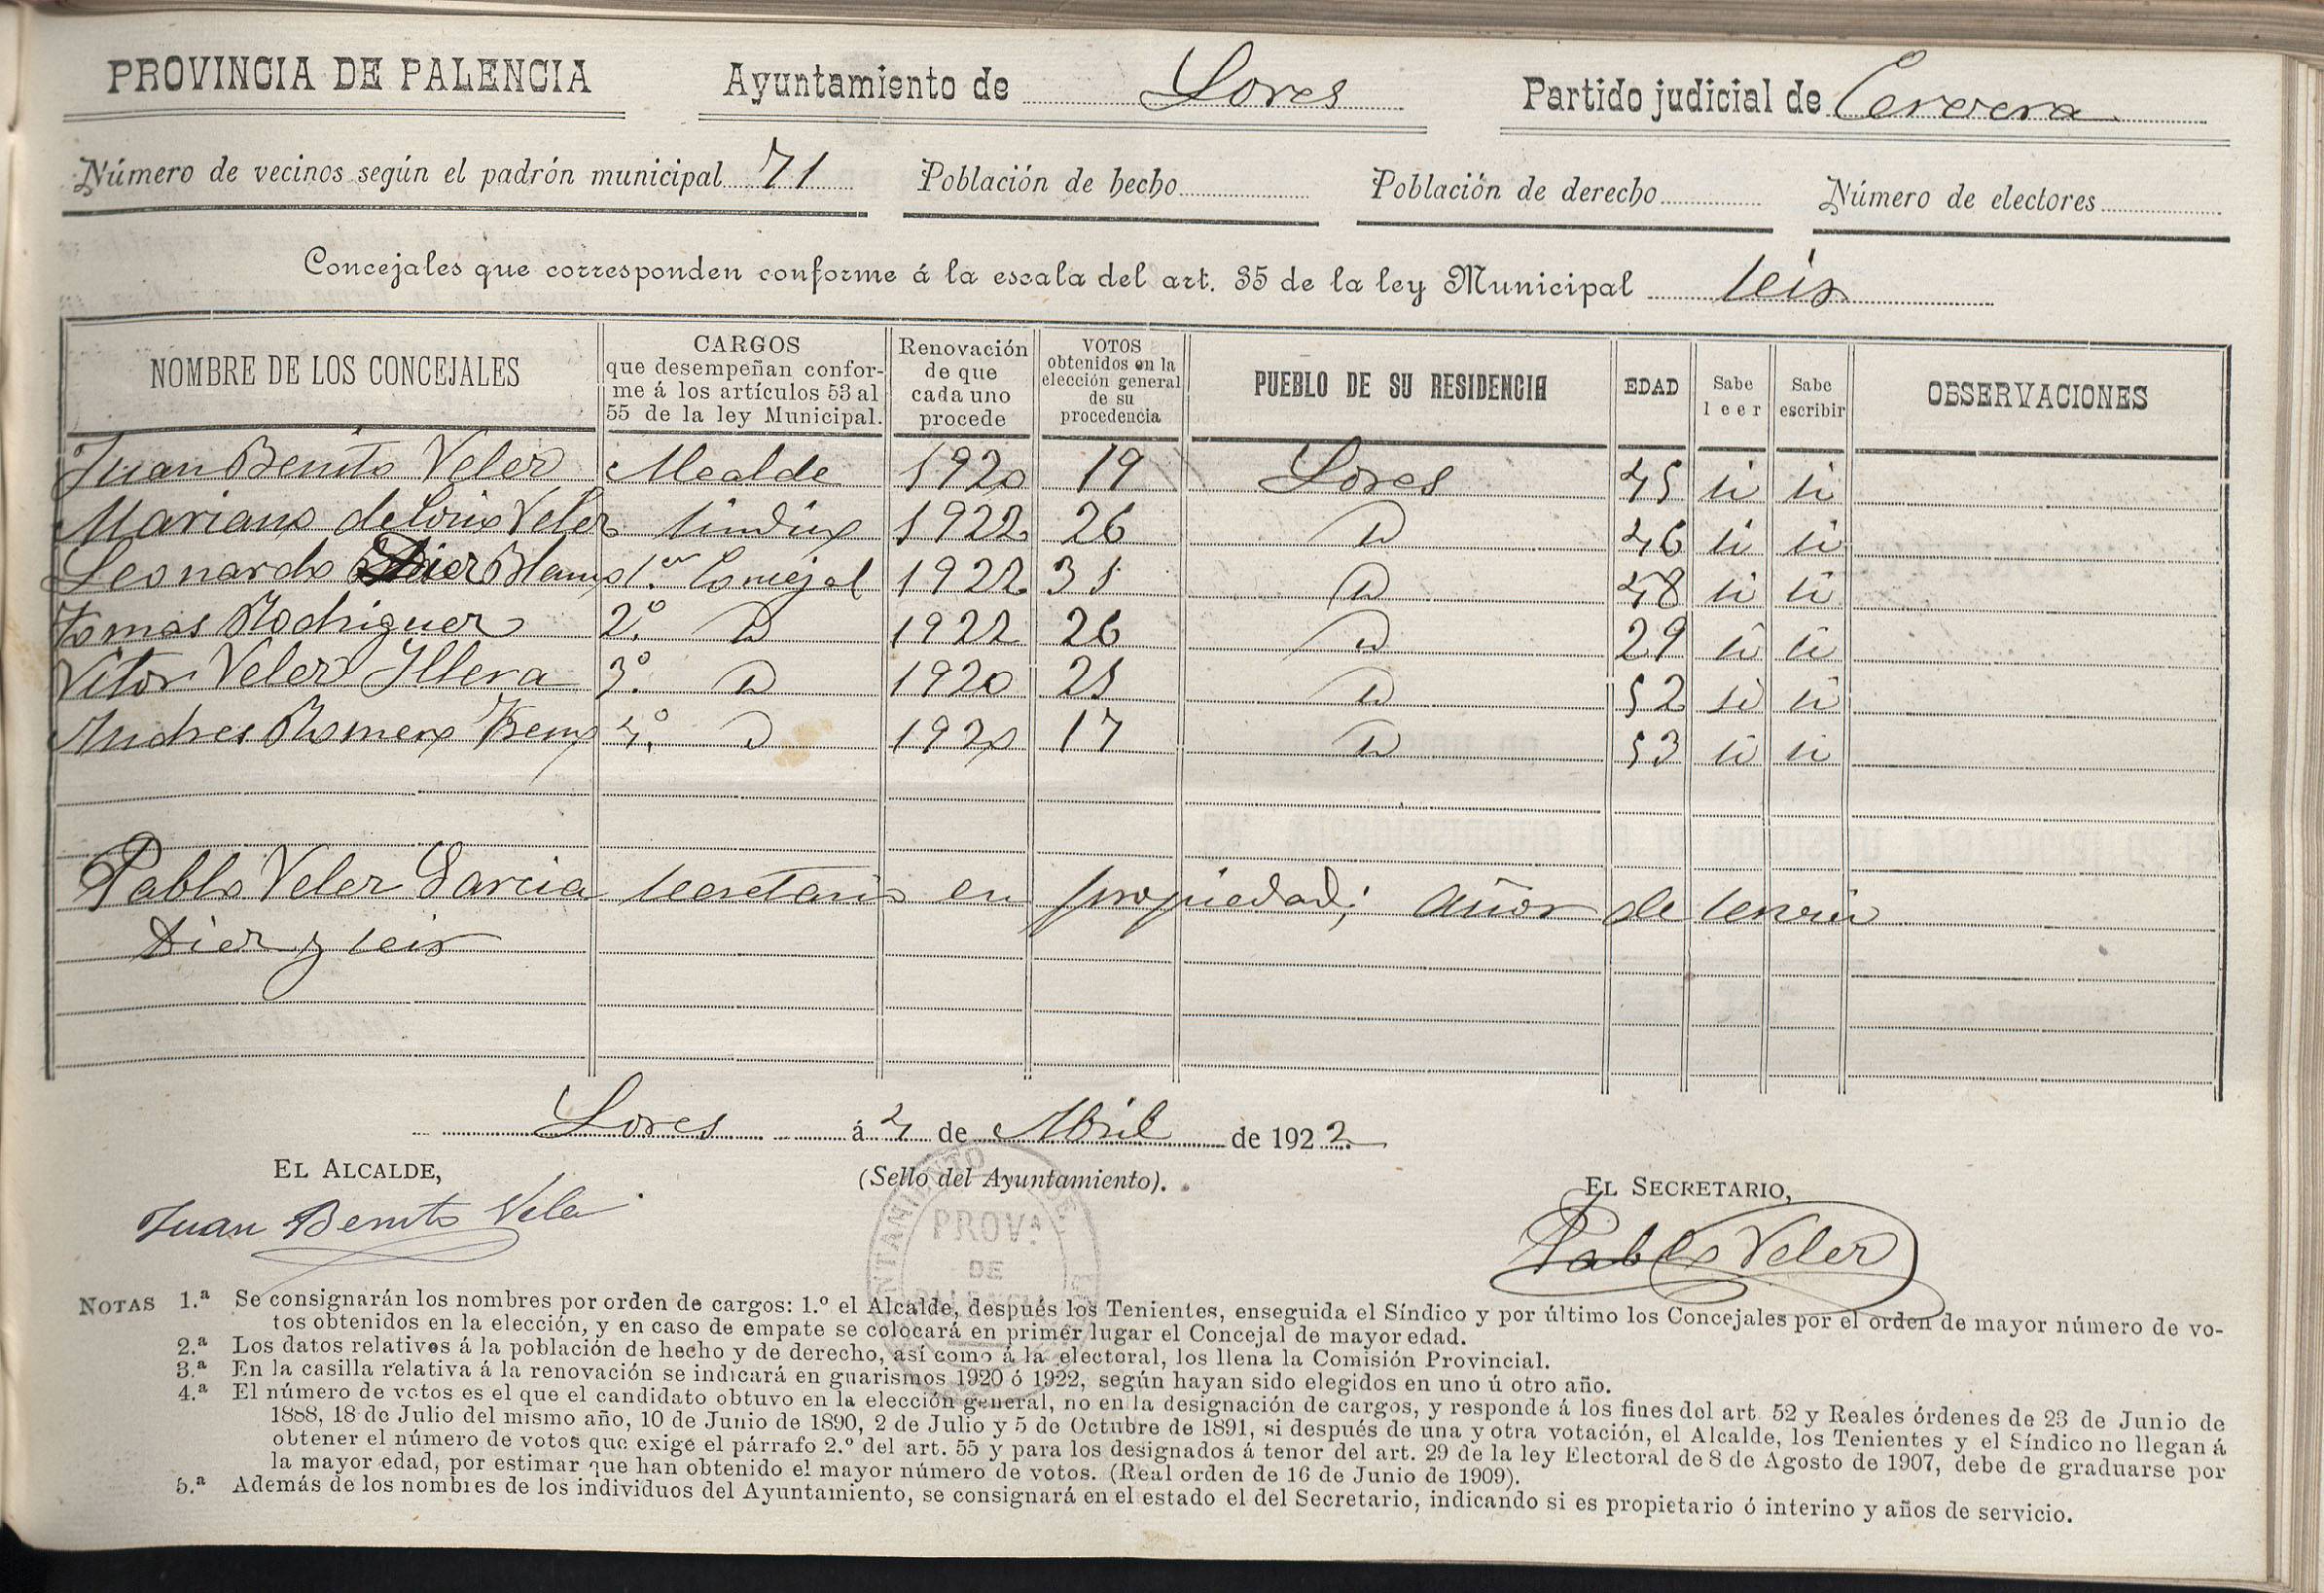 PROVINCIA DE PALENCIA Ayuntamiento de Lores Partido judicial de Cervera
Número de vecinos según el padrón municipal 71 Población de hecho Población de derecho Número de electores
Concejales que corresponden conforme á la escala del art. 35 de la ley Municipal seis
NOMBRE DE LOS CONCEJALES
CARGOS
que desempeñan confor-
me á los artículos 53 al
55 de la ley Municipal.
Renovación
de que
cada uno
procede
VOTOS
obtenidos en la
elección general
de su
procedencia
PUEBLO DE SU RESIDENCIA
EDAD
Sabe
leer
Sabe
escribir
OBSERVACIONES
Juan Benito Velez Alcalde 1920 19 Lores 45 si si
Mariano de Velez Sindico 1922 26 D 46 si si
Leonardo Diez Blanco 1.er Concejal 1922 D 48 si si
Tomas Rodriguez 2.º D 1922 26 D 29 si si
Vitor Velez Illera 3.º D 1920 25 D 52 si si
Andres Romero 4.º D 1920 17 D 53 si si
Pablo Velez Garcia secretario en propiedad; años de servicio
Diez y seis
Lores á 4 de Abril de 1922
EL ALCALDE,
(Sello del Ayuntamiento).
EL SECRETARIO,
Juan Benito Velez
Pablo Velez
AYUNTAMIENTO DE
PROVA
DE
PALENCIA
NOTAS 1.ª Se consignarán los nombres por orden de cargos: 1.º el Alcalde, después los Tenientes, enseguida el Síndico y por último los Concejales por el orden de mayor número de vo-
tos obtenidos en la elección, y en caso de empate se colocará en primer lugar el Concejal de mayor edad.
2.ª Los datos relativos á la población de hecho y de derecho, así como á la electoral, los llena la Comisión Provincial.
3.ª En la casilla relativa á la renovación se indicará en guarismos 1920 ó 1922, según hayan sido elegidos en uno ú otro año.
4.ª El número de votos es el que el candidato obtuvo en la elección general, no en la designación de cargos, y responde á los fines del art. 52 y Reales órdenes de 23 de Junio de
1888, 18 de Julio del mismo año, 10 de Junio de 1890, 2 de Julio y 5 de Octubre de 1891, si después de una y otra votación, el Alcalde, los Tenientes y el Síndico no llegan á
obtener el número de votos que exige el párrafo 2.º del art. 55 y para los designados á tenor del art. 29 de la ley Electoral de 8 de Agosto de 1907, debe de graduarse por
la mayor edad, por estimar que han obtenido el mayor número de votos. (Real orden de 16 de Junio de 1909).
5.ª Además de los nombres de los individuos del Ayuntamiento, se consignará en el estado el del Secretario, indicando si es propietario ó interino y años de servicio.